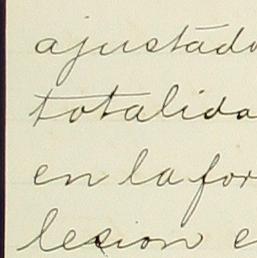 ajustádo
totalida
en la for
lesion e